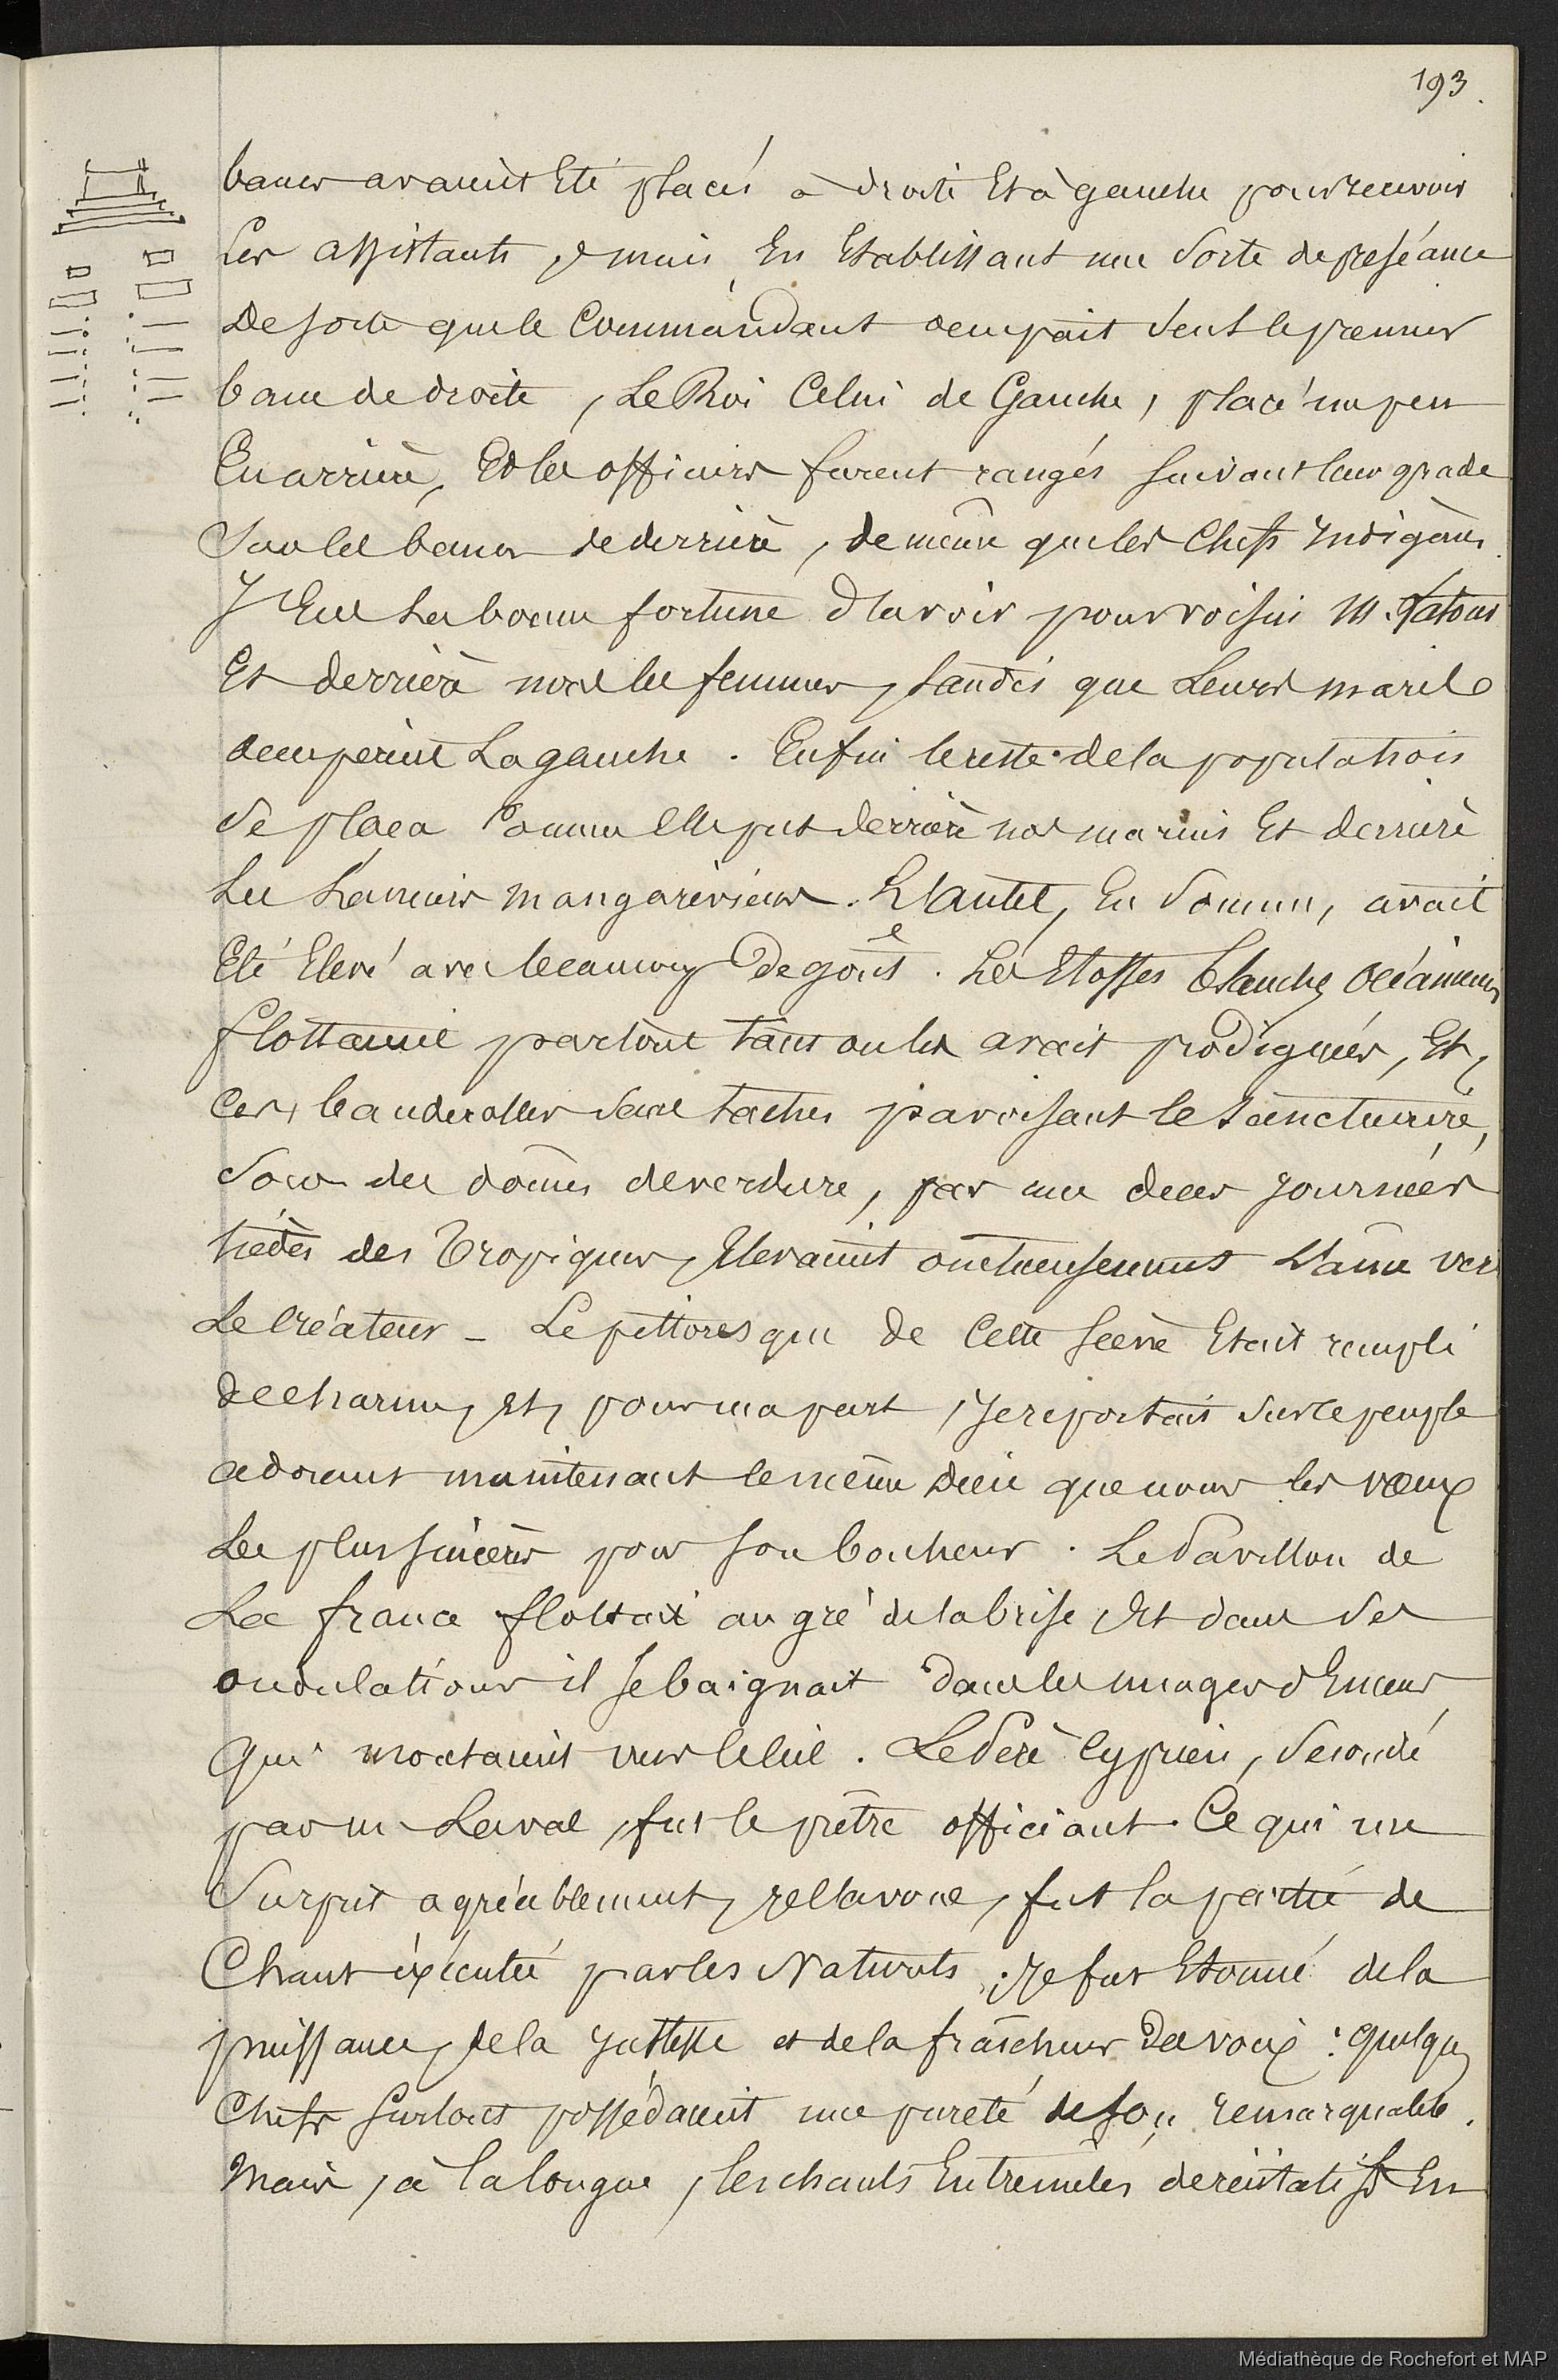 193.
bancs avaient Eté placés à droite Et à gauche pour recevoir
Les assistants, mais En Etablissant une Sorte de preséance
De sorte que le Commandant occupait Seul le premier
banc de droite, Le Roi Celui de Gauche, placé un peu
En arrière, Et les officiers furent rangés suivant leur grade
Sur les bancs de derrière, de même que les Chefs Indigènes.
J'Eus La bonne fortune d'avoir pour voisin M. Latour
Et derrière nous les femmes, tandis que Leurs maris
occupèrent La gauche. Enfin le reste de la population
Se plaça Comme Elle put derrière nos marins Et derrière
Les mangaréviens. L'autel, En Somme, avait
Eté Elevé avec beaucoup De goût. Les Etoffes blanches océaniennes
flottaient partout tant on les avait prodiguées, Et,
Ces banderolles Sans taches pavoisant le Sanctuaire,
Sous des dômes de verdure, par une de ces journées
tièdes des Tropiques, Elevaient onctueusement L'âme vers
Le Créateur _ Le pittoresque de Cette scène Etait rempli
de charme, Et, pour ma part, Je reportais sur ce peuple
adorant maintenant le même Dieu que nous les vœux
Les plus sincères pour son bonheur. Le Pavillon de
La france flottait au gré de la brise Et dans Ses
ondulations il se baignait Dans les nuages d'Encens
Qui montaient vers le Ciel. Le Père Cyprien, Secondé
par M. Laval, fut le prêtre officiant. Ce qui me
Surprit agréablement, je l'avoue, fut la partie de
Chant éxécutée par les Naturels; Je fus Etonné de la
puissance, de la justesse et de la fraîcheur Des voix : quelques
Chefs surtout possédaient une pureté de son remarquable.
Mais, à la longue, les chants Entremêlés de récitatifs En
Médiathèque de Rochefort et MAP